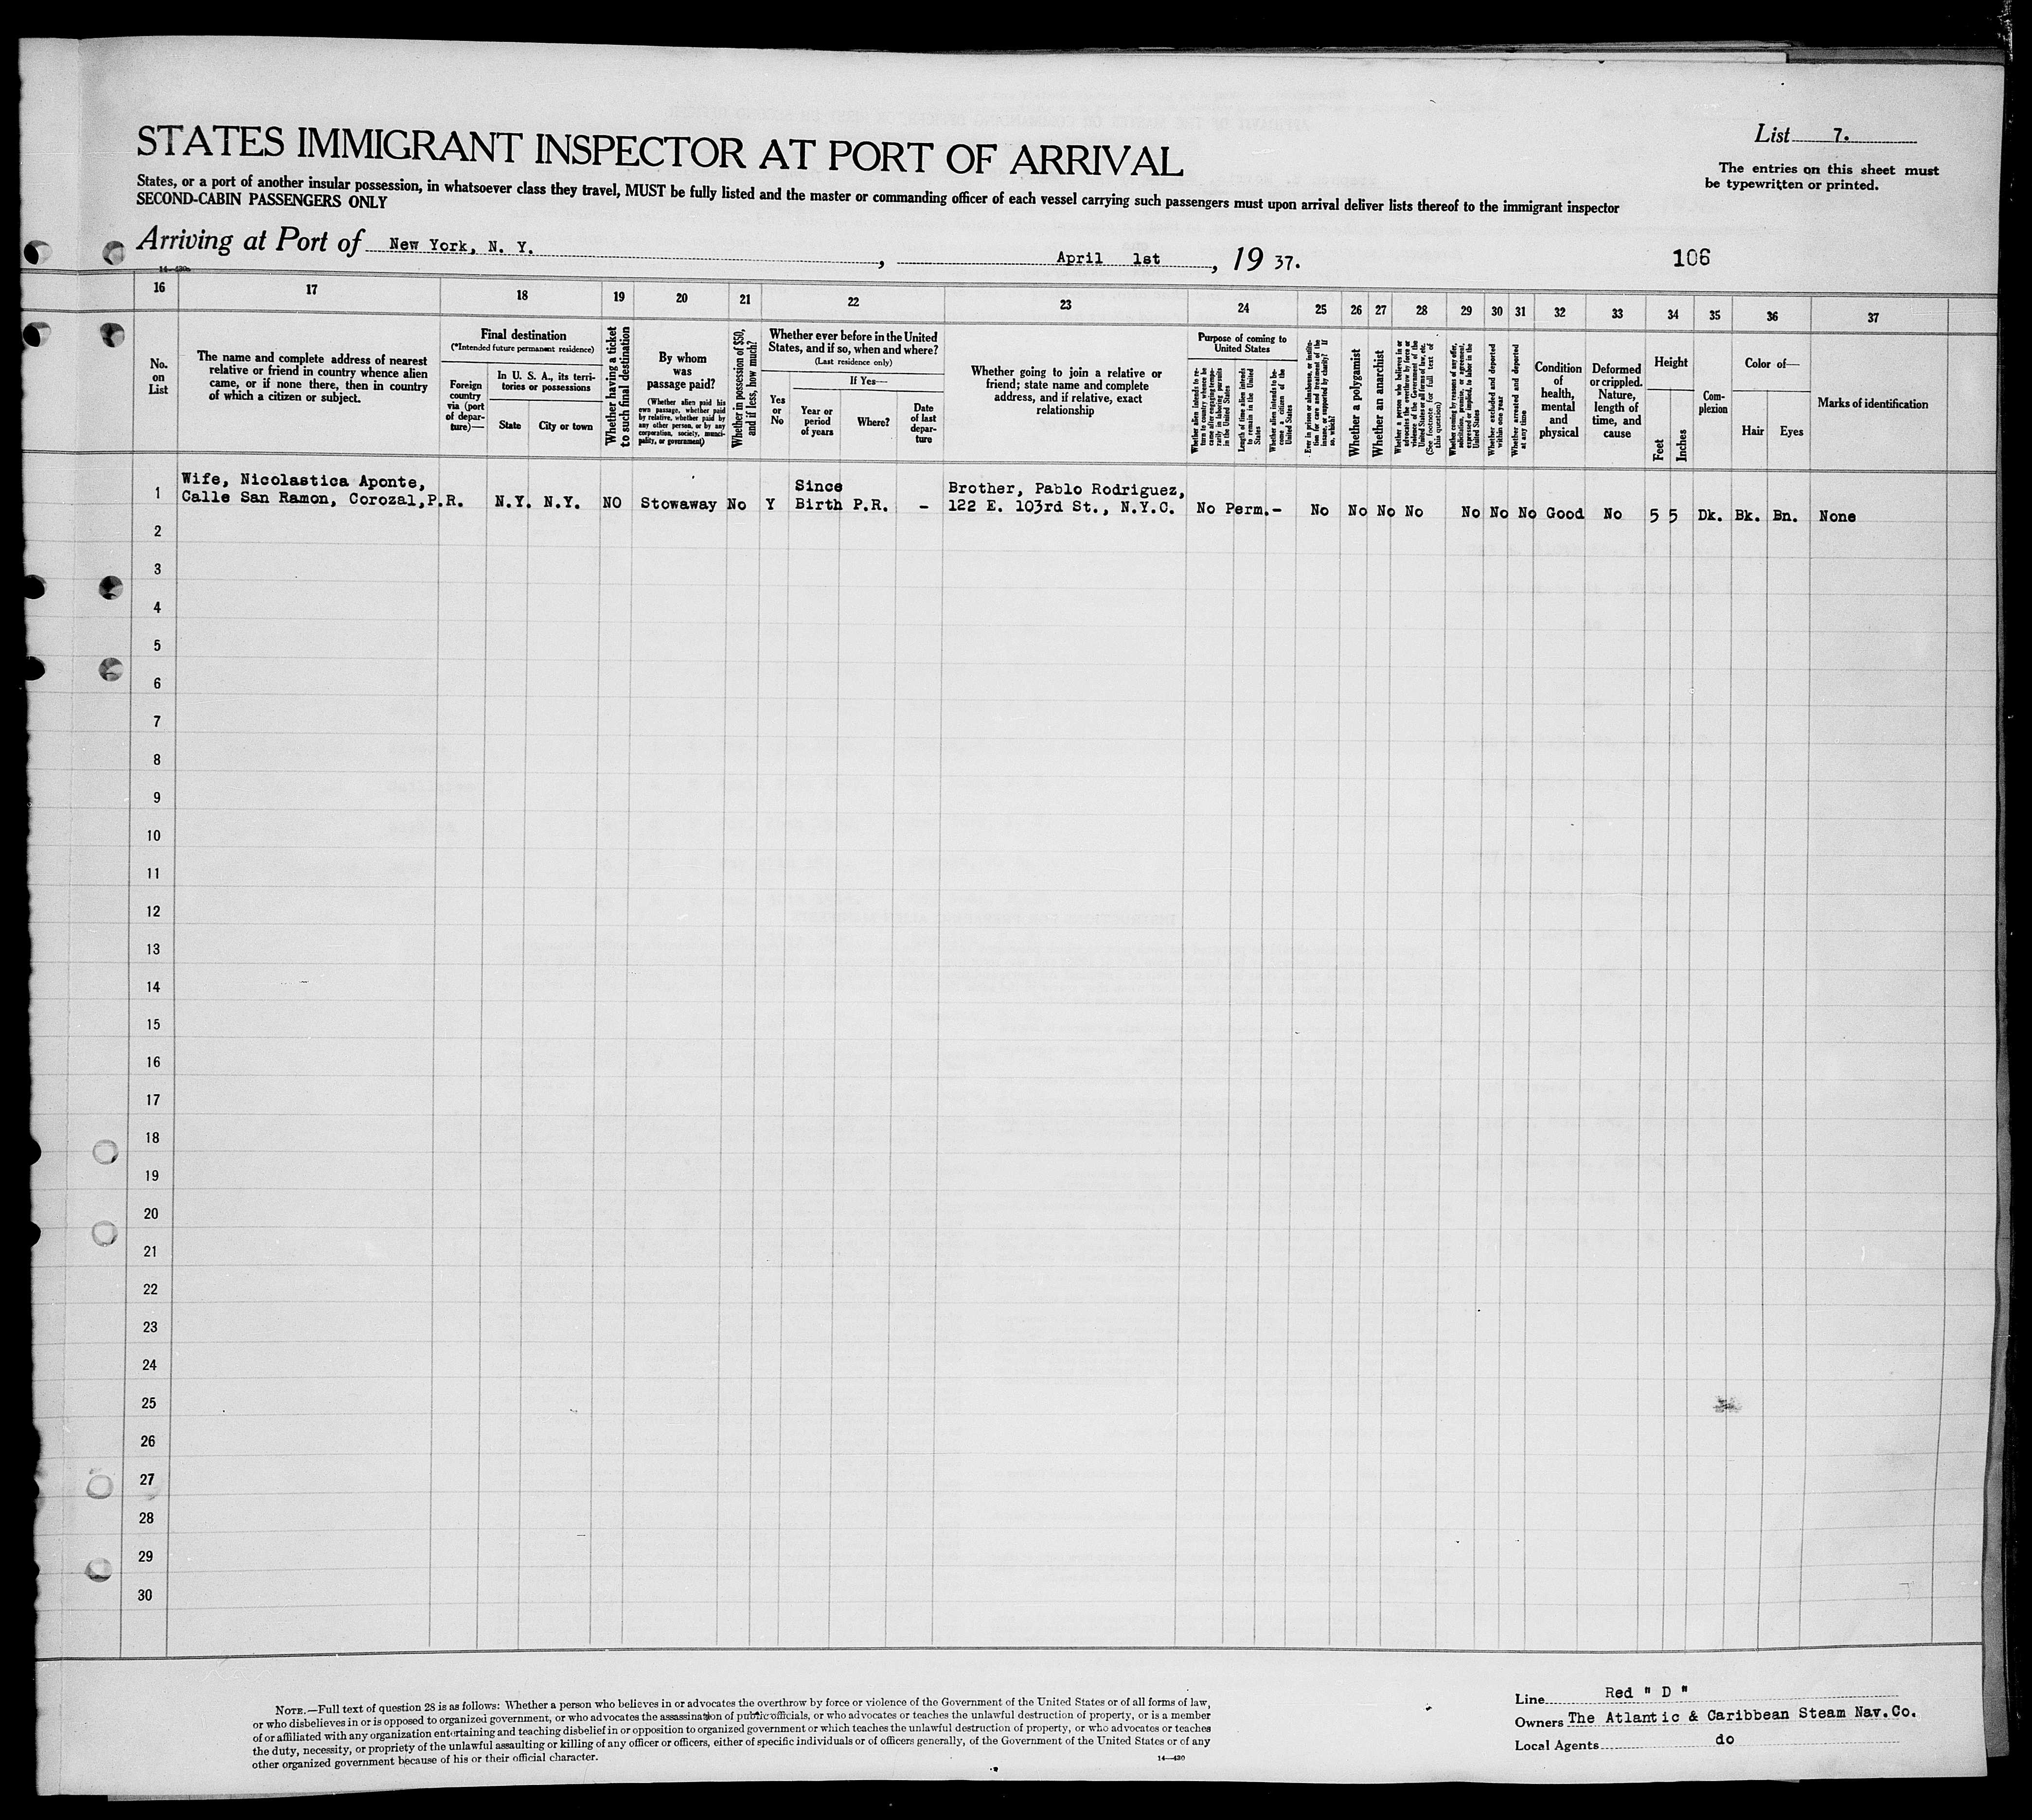 STATES IMMIGRANT INSPECTOR AT PORT OF ARRIVAL
List 7.
The entries on this sheet must
be typewritten or printed.
States, or a port of another insular possession, in whatsoever class they travel, MUST be fully listed and the master or commanding officer of each vessel carrying such passengers must upon arrival deliver lists thereof to the immigrant inspector
SECOND-CABIN PASSENGERS ONLY
Arriving at Port of New York, N. Y., April 1st, 19 37.
106
14—430a
16 17 18 19 20 21 22 23 24 25 26 27 28 29 30 31 32 33 34 35 36 37
No.
on
List
The name and complete address of nearest
relative or friend in country whence alien
came, or if none there, then in country
of which a citizen or subject.
Final destination
(*Intended future permanent residence)
Foreign
country
via (port
of depar-
ture)—
In U. S. A., its terri-
tories or possessions
State
City or town
Whether having a ticket
to such final destination
By whom
was
passage paid?
(Whether alien paid his
own passage, whether paid
by relative, whether paid by
any other person, or by any
corporation, society, munici-
pality, or government)
Whether in possession of $50,
and if less, how much?
Whether ever before in the United
States, and if so, when and where?
(Last residence only)
Yes
or
No
If Yes—
Year or
period
of years
Where?
Date
of last
depar-
ture
Whether going to join a relative or
friend; state name and complete
address, and if relative, exact
relationship
Purpose of coming to
United States
Whether alien intends to re-
turn to country whence he
came after engaging tempo-
rarily in laboring pursuits
in the United States
Length of time alien intends
to remain in the United
States
Whether alien intends to be-
come a citizen of the
United States
Ever in prison or almshouse, or institu-
tion for care and treatment of the
insane, or supported by charity? If
so, which?
Whether a polygamist
Whether an anarchist
Whether a person who believes in or
advocates the overthrow by force or
violence of the Government of the
United States or all forms of law, etc.
(See footnote for full text of
this question)
Whether coming by reasons of any offer,
solicitation, promise, or agreement,
expressed or implied, to labor in the
United States
Whether excluded and deported
within one year
Whether arrested and deported
at any time
Condition
of
health,
mental
and
physical
Deformed
or crippled.
Nature,
length of
time, and
cause
Height
Feet
Inches
Com-
plexion
Color of—
Hair
Eyes
Marks of identification
Wife, Nicolastica Aponte, Since Brother, Pablo Rodriguez,
1 Calle San Ramon, Corozal,P.R. N.Y. N.Y. NO Stowaway No Y Birth P.R. - 122 E. 103rd St., N.Y.C. No Perm.- No No No No No No No Good No 5 5 Dk. Bk. Bn. None
2
3
4
5
6
7
8
9
10
11
12
13
14
15
16
17
18
19
20
21
22
23
24
25
26
27
28
29
30
NOTE.—Full text of question 28 is as follows: Whether a person who believes in or advocates the overthrow by force or violence of the Government of the United States or of all forms of law,
or who disbelieves in or is opposed to organized government, or who advocates the assassination of public officials, or who advocates or teaches the unlawful destruction of property, or is a member
of or affiliated with any organization entertaining and teaching disbelief in or opposition to organized government or which teaches the unlawful destruction of property, or who advocates or teaches
the duty, necessity, or propriety of the unlawful assaulting or killing of any officer or officers, either of specific individuals or of officers generally, of the Government of the United States or of any
other organized government because of his or their official character.
14—430
Line Red " D "
Owners The Atlantic & Caribbean Steam Nav.Co.
Local Agents do